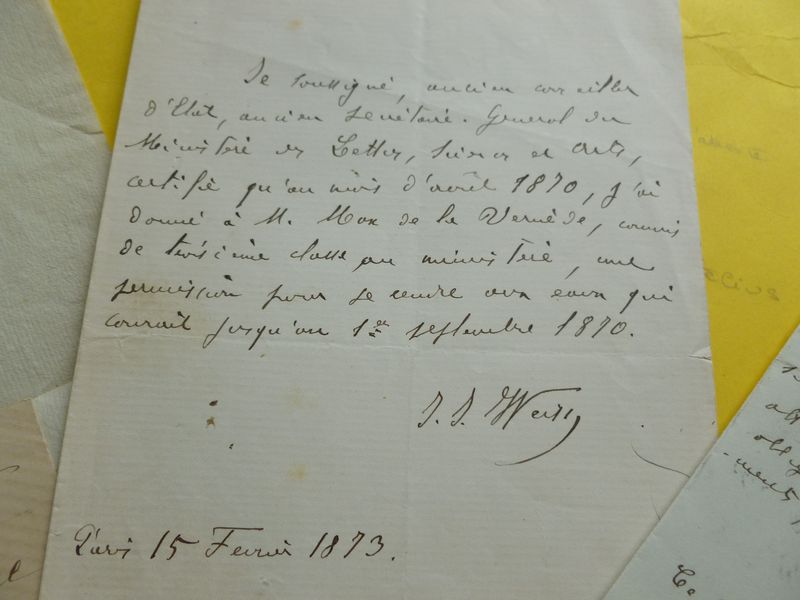 Je soussigné, ancien conseiller
d'Etat, ancien secrétaire-Général du
Ministère des Lettres, Sciences et Arts,
certifie qu'au mois d'août 1870, j'ai
donné à M. Max de la Vernède, commis
de troisième classe au ministère, une
permission pour se rendre aux eaux qui
courait jusqu'au 1er septembre 1870.
J. J. Weiss
Paris 15 Février 1873.